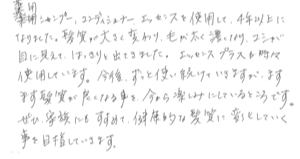 薬用
薬用シャンプー、コンディショナー、エッセンスを使用して、4年以上に
なりました。髪質が大きく変わり、毛が太く濃くなり、コシが
目に見えて、はっきりと出てきました。エッセンスプラスも時々
使用しています。今後、ずっと使い続けていきますが、ます
ます髪質が良くなる事を、今から楽しみにしているところです。
ぜひ、家族にもすすめて、健康的な髪質に変化していく
事を目指していきます。